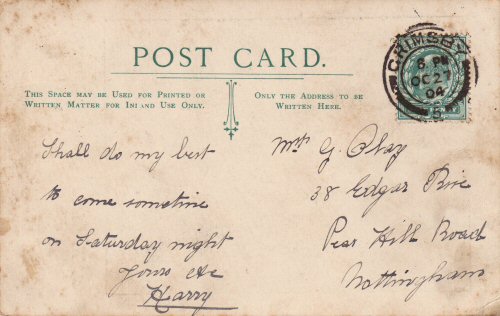 POST CARD.
THIS SPACE MAY BE USED FOR PRINTED OR
WRITTEN MATTER FOR INLAND USE ONLY.
ONLY THE ADDRESS TO BE
WRITTEN HERE.
GRIMSBY
6 PM
OC 27
04
Shall do my best
to come sometime
on Saturday night
Yours &c
Harry
G.
38 Edgar Rise
Pear Hill Road
Nottingham